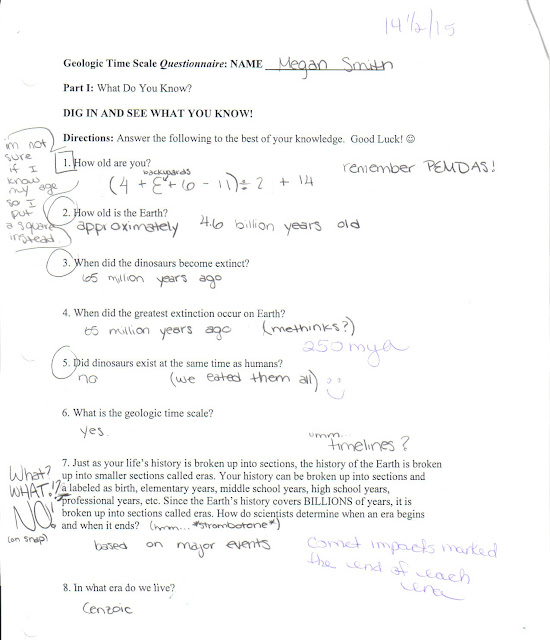 14 1/2/15
Geologic Time Scale Questionnaire: NAME Megan Smith
Part I: What Do You Know?
DIG IN AND SEE WHAT YOU KNOW!
Directions: Answer the following to the best of your knowledge. Good Luck! ☺
im not
sure
if I
know
my age
so I
put
a square
instead.
1. How old are you?
remember PEMDAS!
backwards
(4 + Ɛ + 6 - 11) ÷ 2 + 14
2. How old is the Earth?
approximately 4.6 billion years old
3. When did the dinosaurs become extinct?
65 million years ago
4. When did the greatest extinction occur on Earth?
65 million years ago (methinks?)
250 mya
5. Did dinosaurs exist at the same time as humans?
no (we eated them all)
6. What is the geologic time scale?
yes. umm...
timelines?
What?
WHAT!?
NO!
(oh snap)
7. Just as your life's history is broken up into sections, the history of the Earth is broken
up into smaller sections called eras. Your history can be broken up into sections and
a labeled as birth, elementary years, middle school years, high school years,
professional years, etc. Since the Earth's history covers BILLIONS of years, it is
broken up into sections called eras. How do scientists determine when an era begins
and when it ends? (hmm... *strombotone*)
based on major events
comet impacts marked
the end of each
era
8. In what era do we live?
Cenzoic